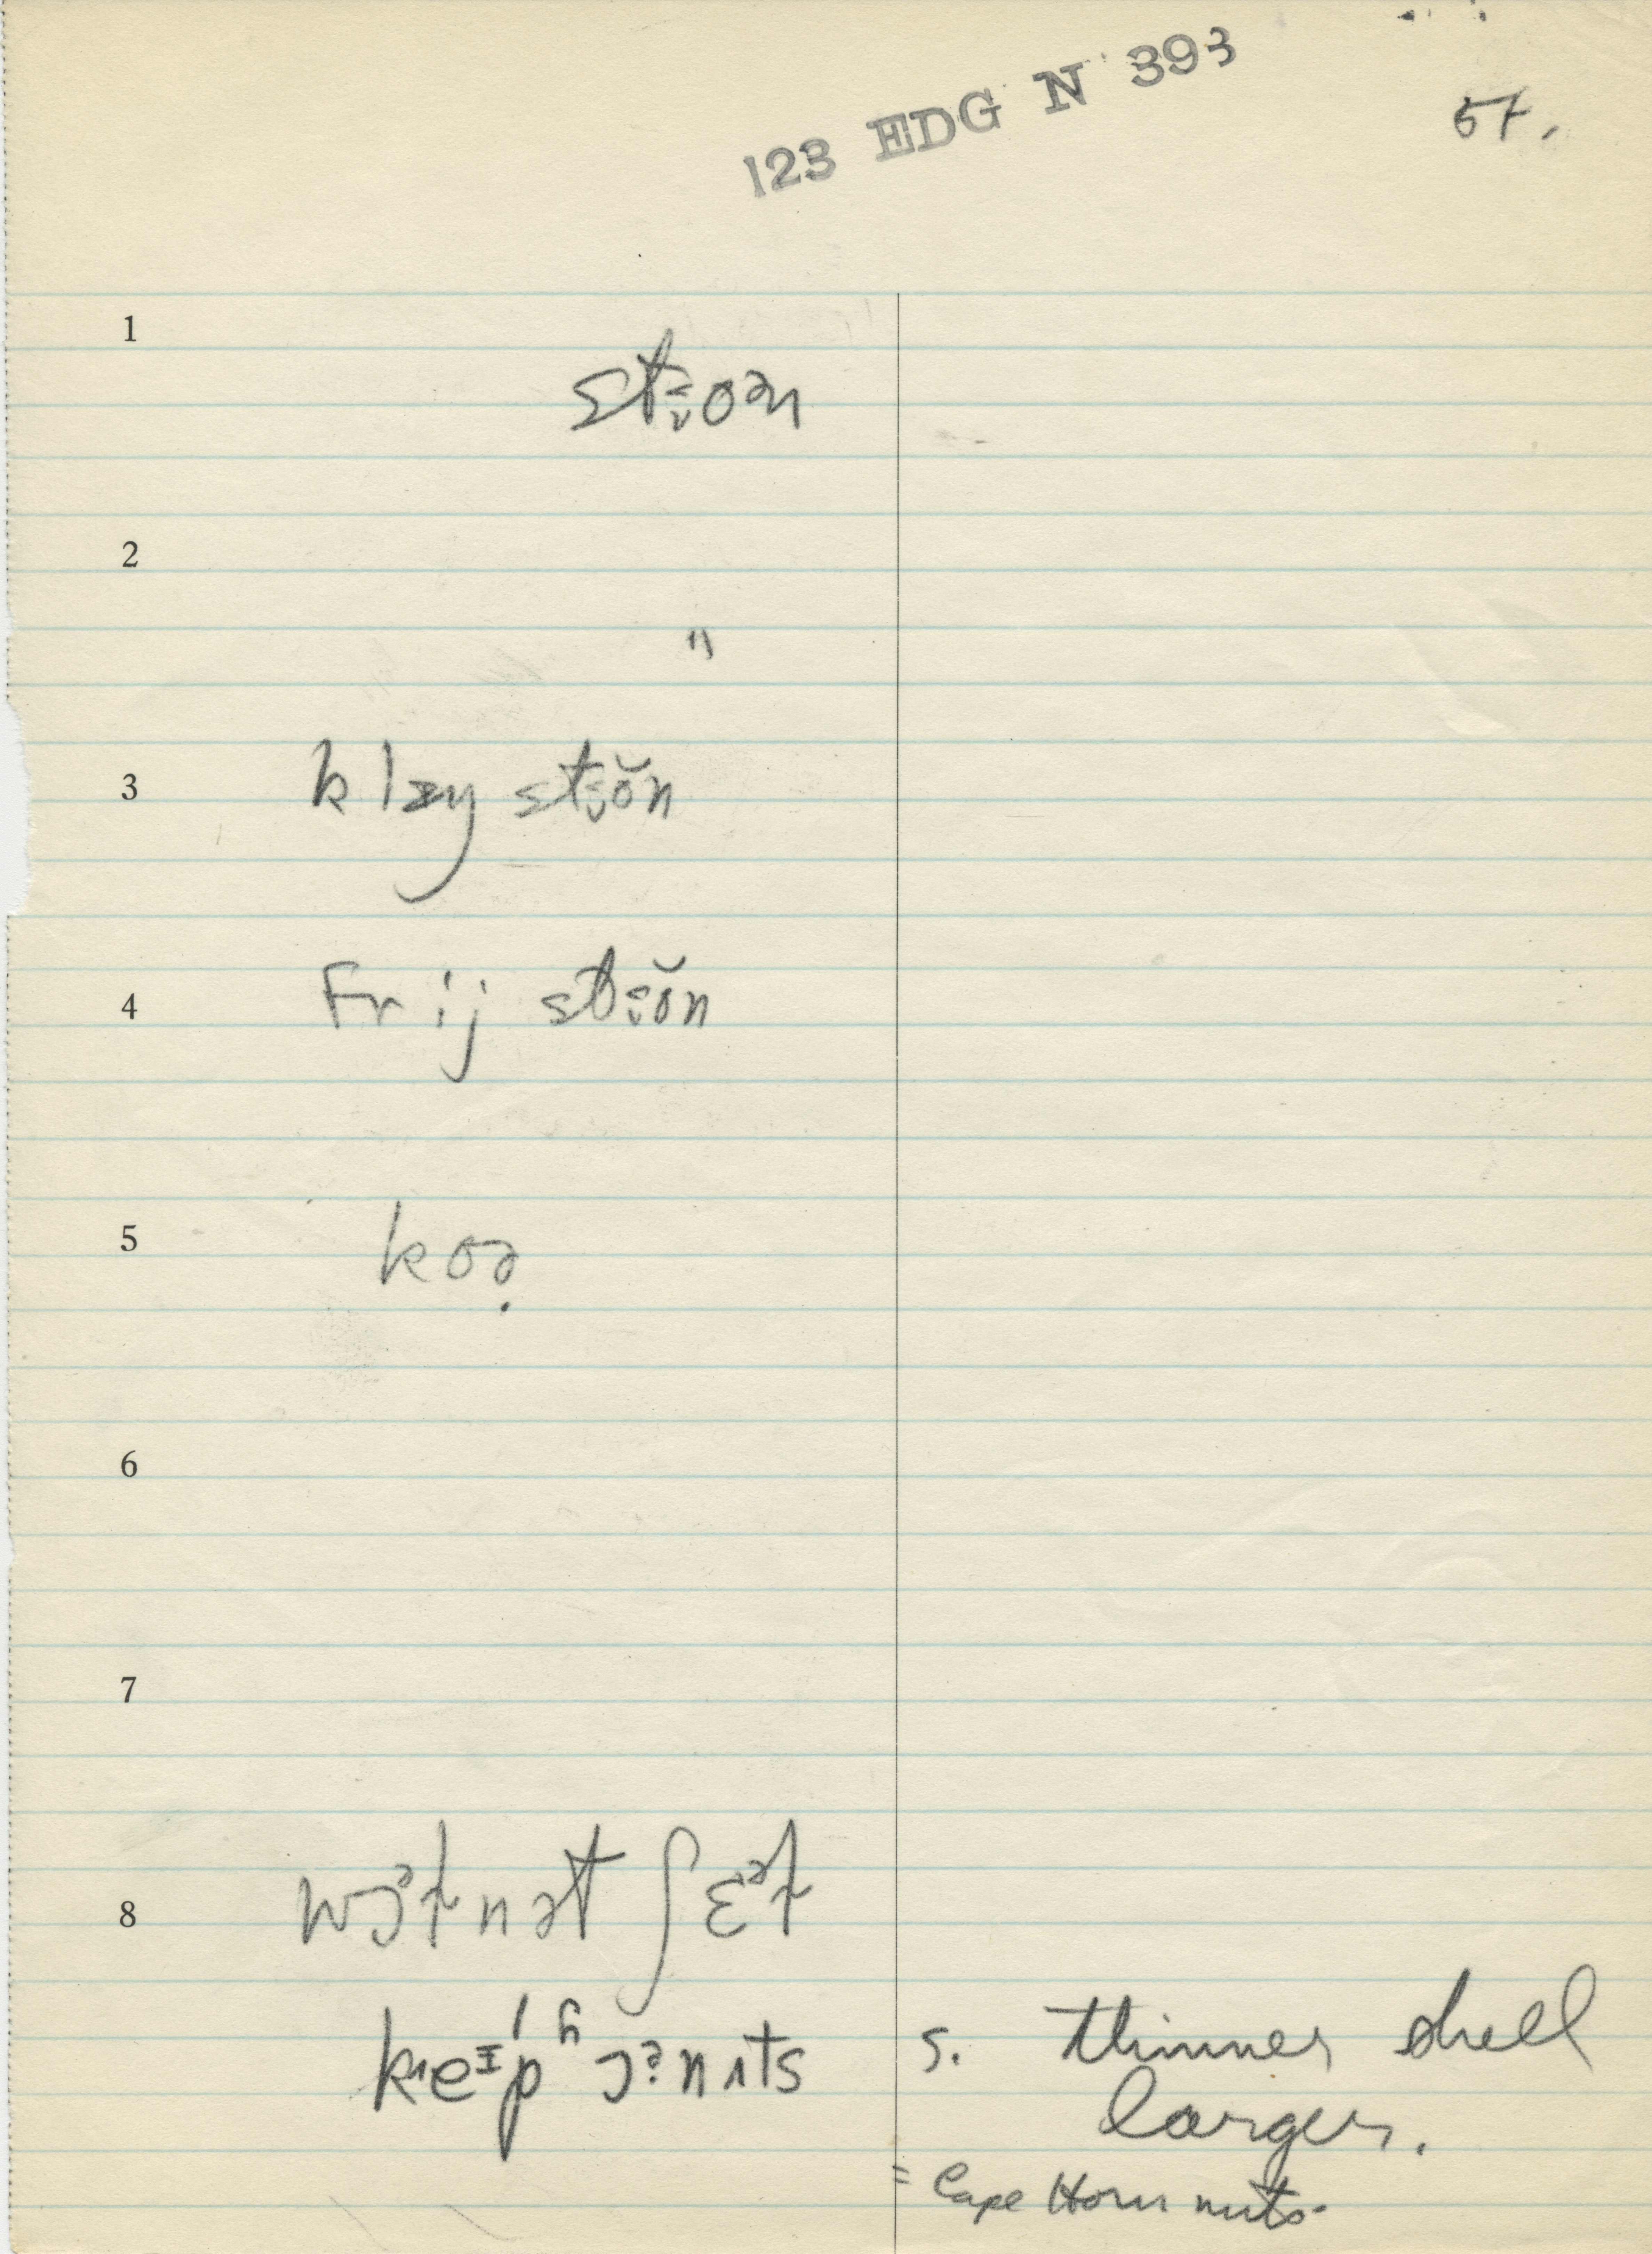 123 EDG N 393
57.
1
stɜoən
2
"
3
klɪŋ stɜŏn
4
Fr ij stɜŏn
5
koə̣
6
7
8
wɔᵊɫnət ʃɛᵊɫ
keɪpʰɔɜnʌts s. thinner shell
larger.
= Cape Horn nuts.